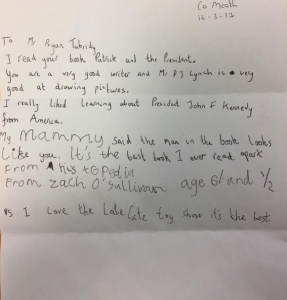 Co Meath
16-3-17
To Mr Ryan Tubridy
I read your book Patrick and the President.
You are a very good writer and Mr PJ Lynch is very
good at drawing pictures.
I really liked learning about President John F Kennedy
from America.
My mammy said the man in the book looks
like you. It's the best book I ever read apart
from
From Zach O'Sullivan age 6 and 1/2
PS I love the late late toy show it's the best